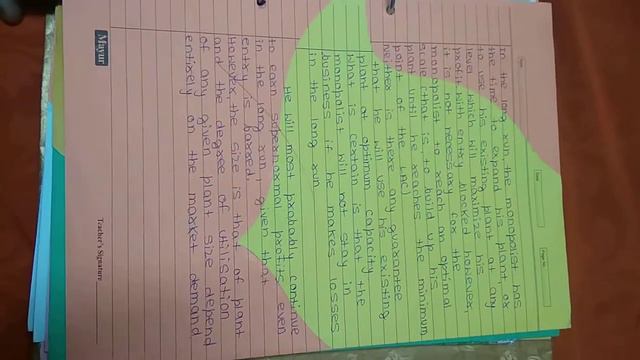 Date
Page No.
In the long run, the monopolist has
the time to expand his plant, or
to use his existing plant at any
level which will maximize his
profit with entry blocked however,
it is not necessary for the
monopolist to reach an optimal
scale (that is to build up his
plant until he reaches the minimum
point of the LAC)
Neither is there any guarantee
that he will use his existing
plant at optimum capacity
What is certain is that the
monopolist will not stay in
business if he makes losses
in the long run
He will most probably continue
to earn supernormal profits even
in the long run, given that
entry is barred.
However, the size is that of plant
and the degree of utilisation
of any given plant size depend
entirely on the market demand
Mayur
Teacher's Signature